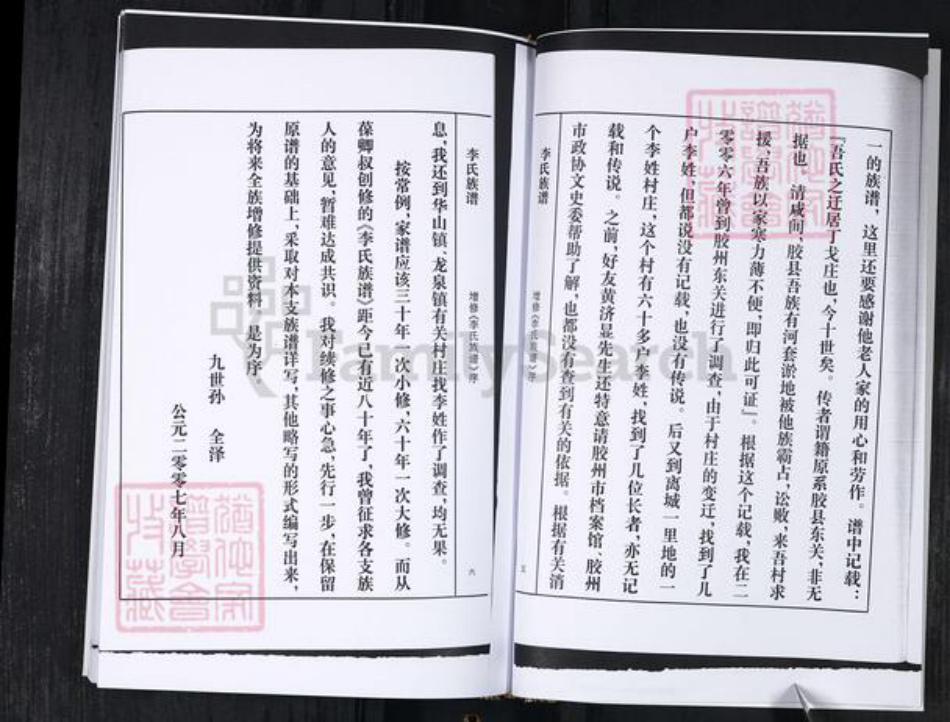 一的族谱，这里还要感谢他老人家的用心和劳作。谱中记载：
『吾氏之迁居丁戈庄也，今十世矣。传者谓籍原系胶县东关，非无
据也。清咸间，胶县吾族有河套淤地被他族霸占，讼败，来吾村求
援，吾族以家寒力薄不便，即归此可证』。根据这个记载，我在二
零零六年曾到胶州东关进行了调查，由于村庄的变迁，找到了几
户李姓，但都说没有记载，也没有传说。后又到离城一里地的一
个李姓村庄，这个村有六十多户李姓，找到了几位长者，亦无记
载和传说。之前，好友黄济显先生还特意请胶州市档案馆、胶州
市政协文史委帮助了解，也都没有查到有关的依据。根据有关消
李氏族谱
增修《李氏族谱》序
五
李氏族谱
增修《李氏族谱》序
六
息，我还到华山镇、龙泉镇有关村庄找李姓作了调查，均无果。
按常例，家谱应该三十年一次小修，六十年一次大修。而从
葆卿叔创修的《李氏族谱》距今已有近八十年了，我曾征求各支族
人的意见，暂难达成共识。我对续修之事心急，先行一步，在保留
原谱的基础上，采取对本支族谱详写，其他略写的形式编写出来，
为将来全族增修提供资料，是为序。
九世孙 全泽
公元二零零七年八月
FamilySearch